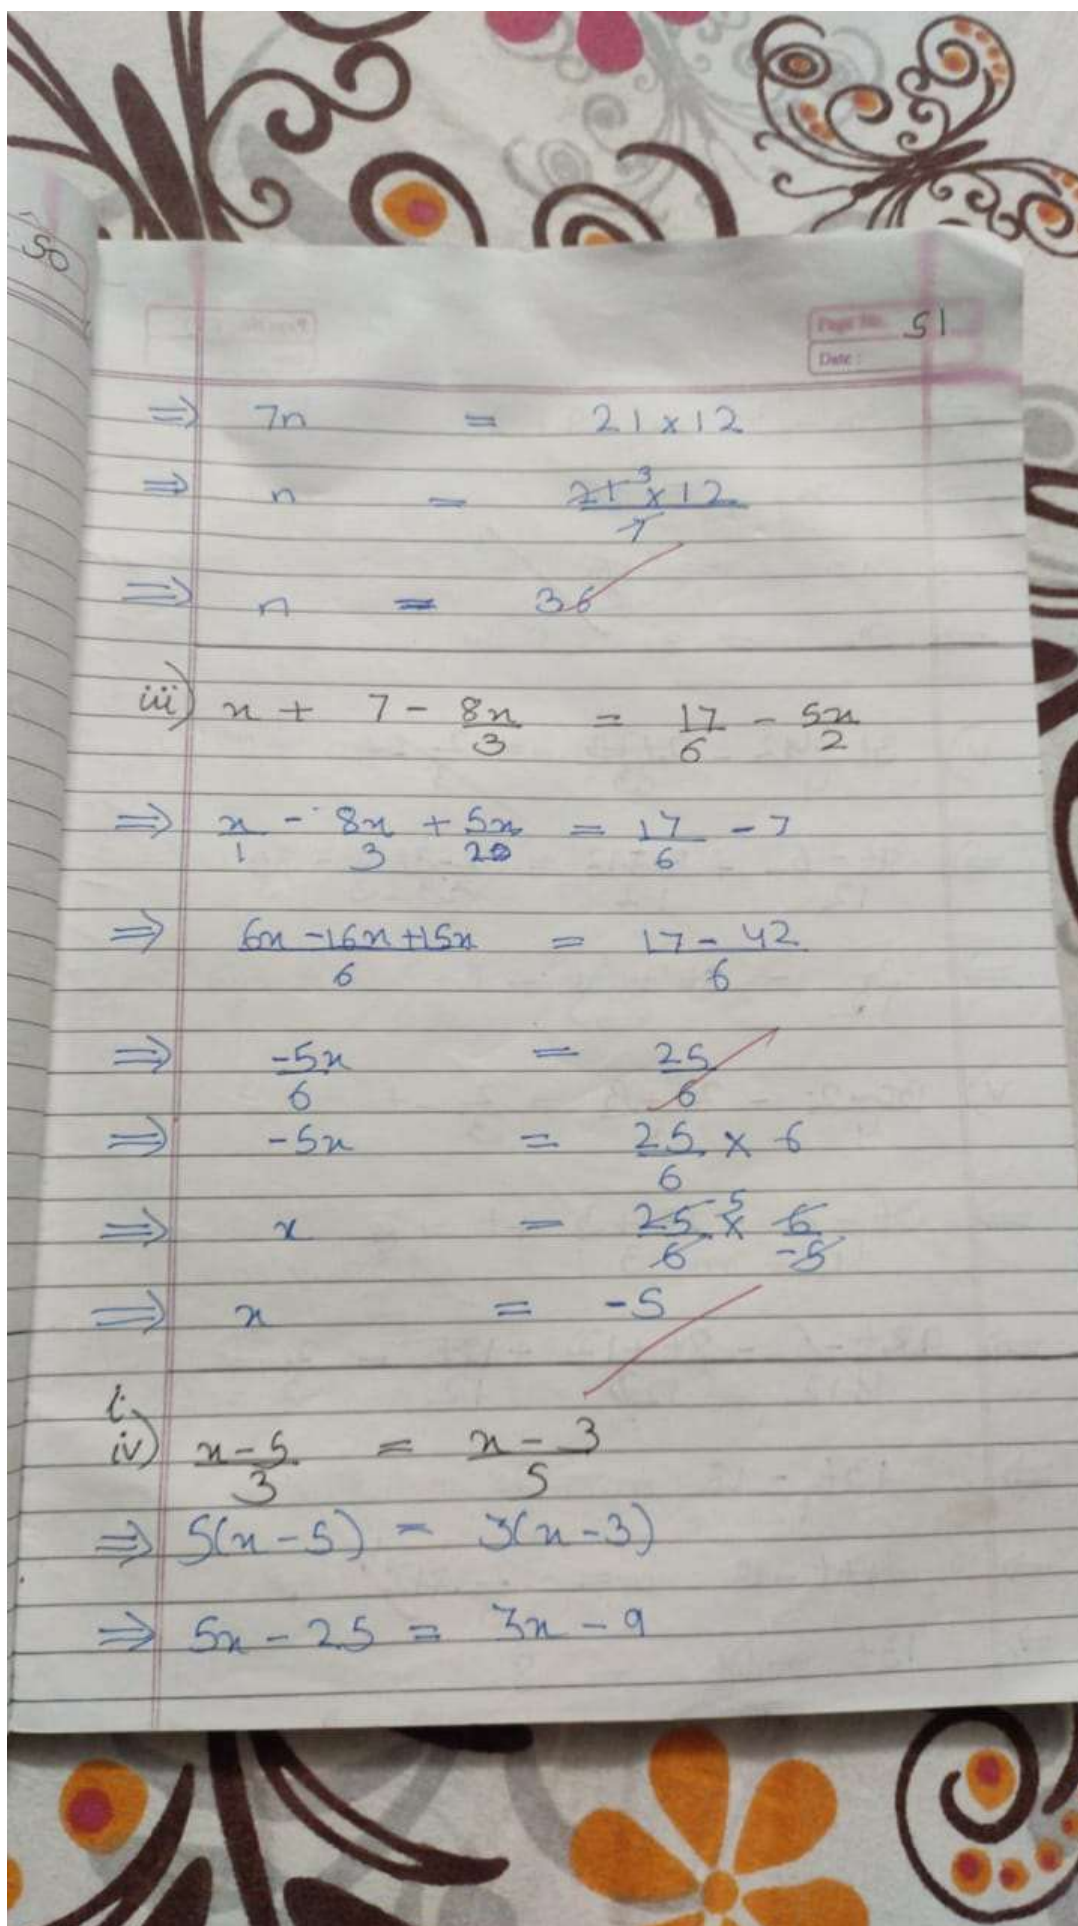 50
Page No. 51
Date :
⇒ 7n = 21 x 12
⇒ n = 21³ x 12 / 7
⇒ n = 36
iii) x + 7 - 8x/3 = 17/6 - 5x/2
⇒ x/1 - 8x/3 + 5x/2 = 17/6 - 7
⇒ 6x - 16x + 15x / 6 = 17 - 42 / 6
⇒ -5x/6 = 25/6
⇒ -5x = 25/6 x 6
⇒ x = 25/6 ⁵x 6/-5
⇒ x = -5
iv) x - 5 / 3 = x - 3 / 5
⇒ 5(x - 5) = 3(x - 3)
⇒ 5x - 25 = 3x - 9